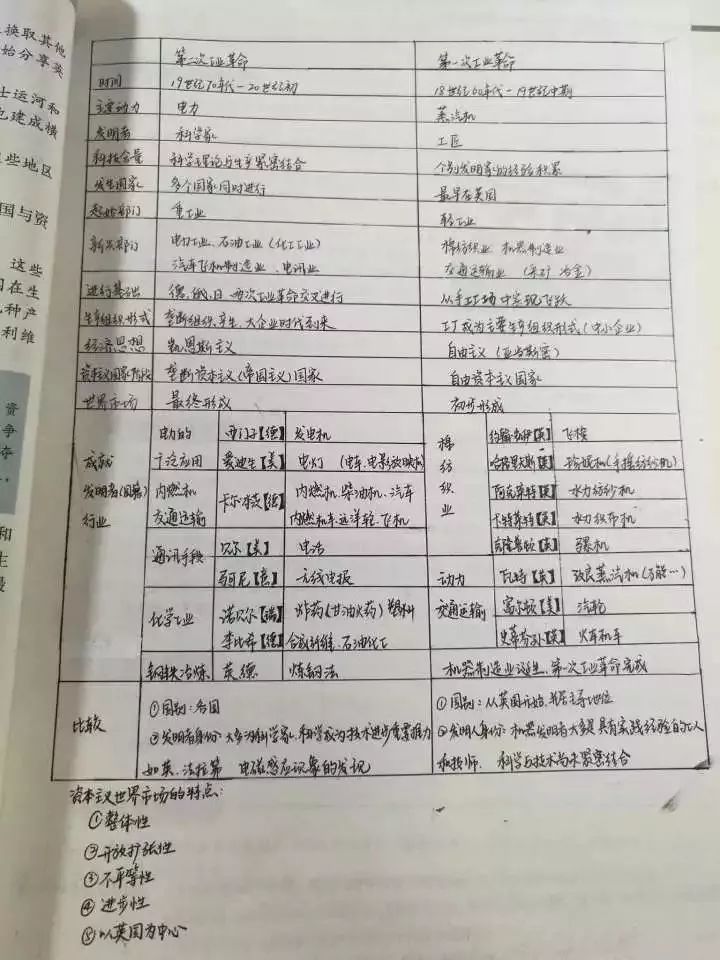 换取其他
始分享英
士运河和
也建成横
些地区
国与资
这些
在生
种产
利维
资
争
夺
和
主
第二次工业革命 第一次工业革命
时间 19世纪70年代-20世纪初 18世纪60年代-19世纪中期
主要动力 电力 蒸汽机
发明者 科学家 工匠
科技含量 科学理论与生产紧密结合 个别发明家的经验积累
发生国家 多个国家同时进行 最早在英国
起始部门 重工业 轻工业
新兴部门 电力工业、石油工业(化工工业) 棉纺织业 机器制造业
汽车飞机制造业、电讯业 交通运输业 (采矿 冶金)
进行基础 德、俄、日 两次工业革命交叉进行 从手工工场中实现飞跃
生产组织形式 垄断组织产生、大企业时代到来 工厂成为主要生产组织形式(中小企业)
经济思想 凯恩斯主义 自由主义(亚当斯密)
资本主义国家阶段 垄断资本主义(帝国主义)国家 自由资本主义国家
世界市场 最终形成 初步形成
成就
发明者(国籍)
行业
电力的 西门子【德】 发电机
广泛应用 爱迪生【美】 电灯 (电车、电影放映机)
内燃机 卡尔本茨【德】 内燃机、柴油机、汽车
交通运输 内燃机车、远洋轮、飞机
通讯手段 贝尔【美】 电话
马可尼【意】 无线电报
化学工业 诺贝尔【瑞】 炸药(甘油火药) 塑料
李比希【德】 合成纤维、石油化工
钢铁冶炼 英 德 炼钢法
棉纺织业 约翰·凯伊【英】 飞梭
哈格里夫斯【英】 珍妮机(手摇纺纱机)
阿克莱特【英】 水力纺纱机
卡特莱特【英】 水力织布机
克隆普顿【英】 骡机
动力 瓦特【英】 改良蒸汽机(万能…)
交通运输 富尔顿【美】 汽轮
史蒂芬孙【英】 火车机车
机器制造业诞生,第一次工业革命完成
比较
①国别:各国
②发明者身份:大多为科学家,科学成为技术进步重要推力
如英、法拉第 电磁感应现象的发现
①国别:从英国开始,英占主导地位
②发明人身份:机器发明者大多是具有实践经验的工人
和技师. 科学与技术尚未紧密结合
资本主义世界市场的特点:
①整体性
②开放扩张性
③不平等性
④进步性
⑤以英国为中心